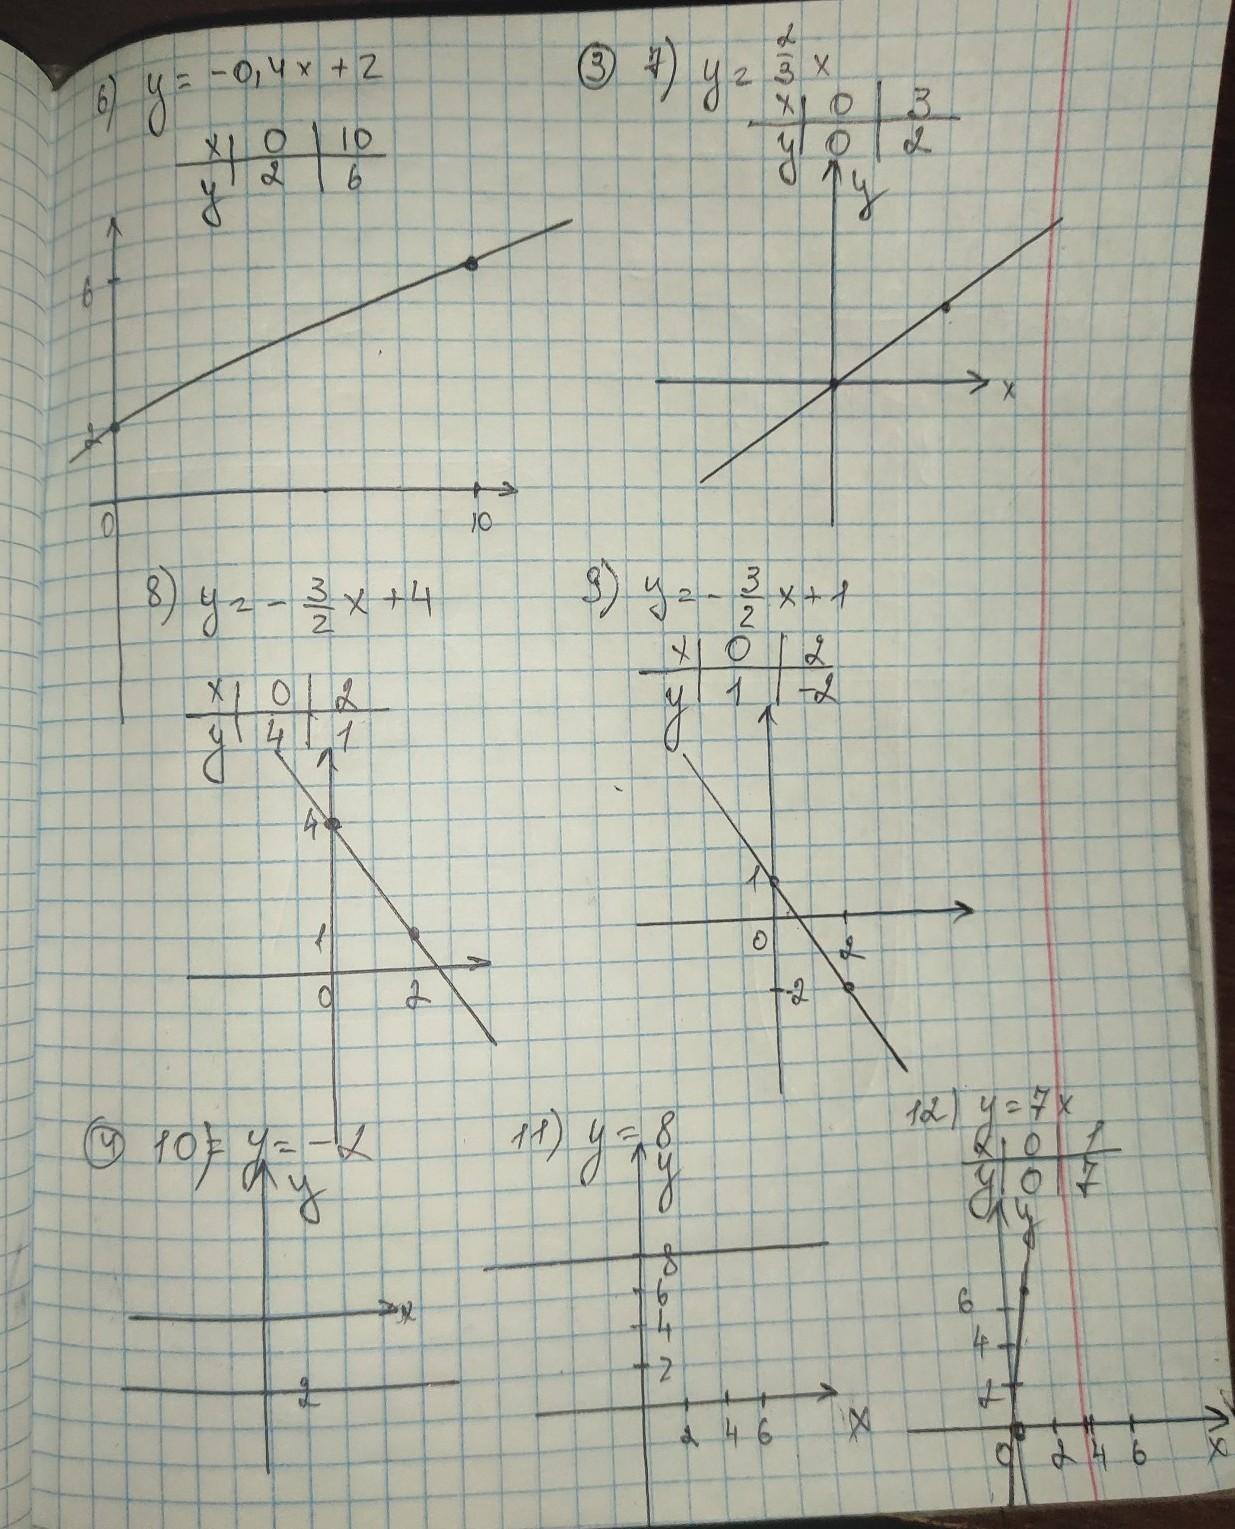 6) y = -0,4x + 2
x | 0 | 10
y | 2 | 6
6
2
0
10
③ 7) y = 2/3 x
x | 0 | 3
y | 0 | 2
y
x
8) y = - 3/2 x + 4
x | 0 | 2
y | 4 | 1
4
1
0
2
9) y = - 3/2 x + 1
x | 0 | 2
y | 1 | -2
1
0
2
-2
④ 10) y = -2
y
x
2
11) y = 8
y
8
6
4
2
2 4 6
x
12) y = 7x
x | 0 | 1
y | 0 | 7
y
6
4
2
0 2 4 6
x